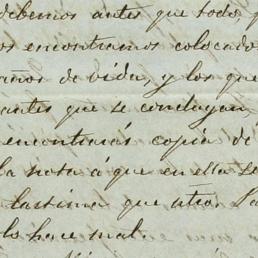 debemos antes que todo
os encontramos colocado
años de vida, y los que
antes que se concluyan,
encontrarás copia de
la nota á que en ella se
lastima que otro. La
lo hace mal.